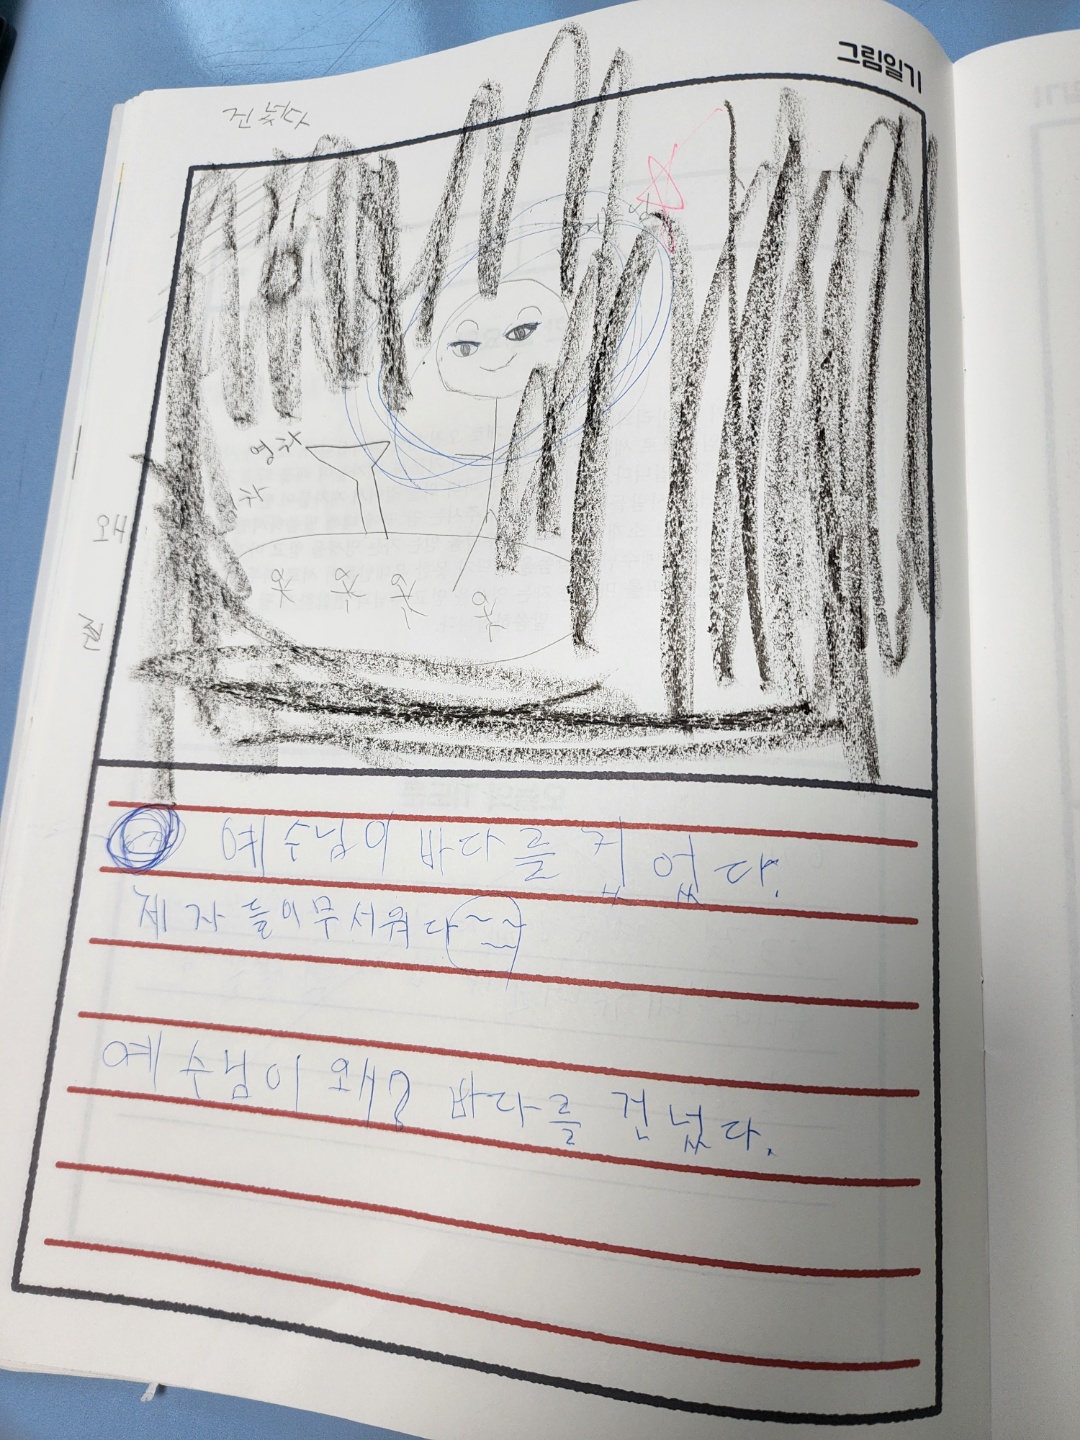 그림일기
진넜다
영차
차
왜
예수님이 바다를 컸었다.
제자들이무서워다
예수님이 왜? 바다를 건넜다.